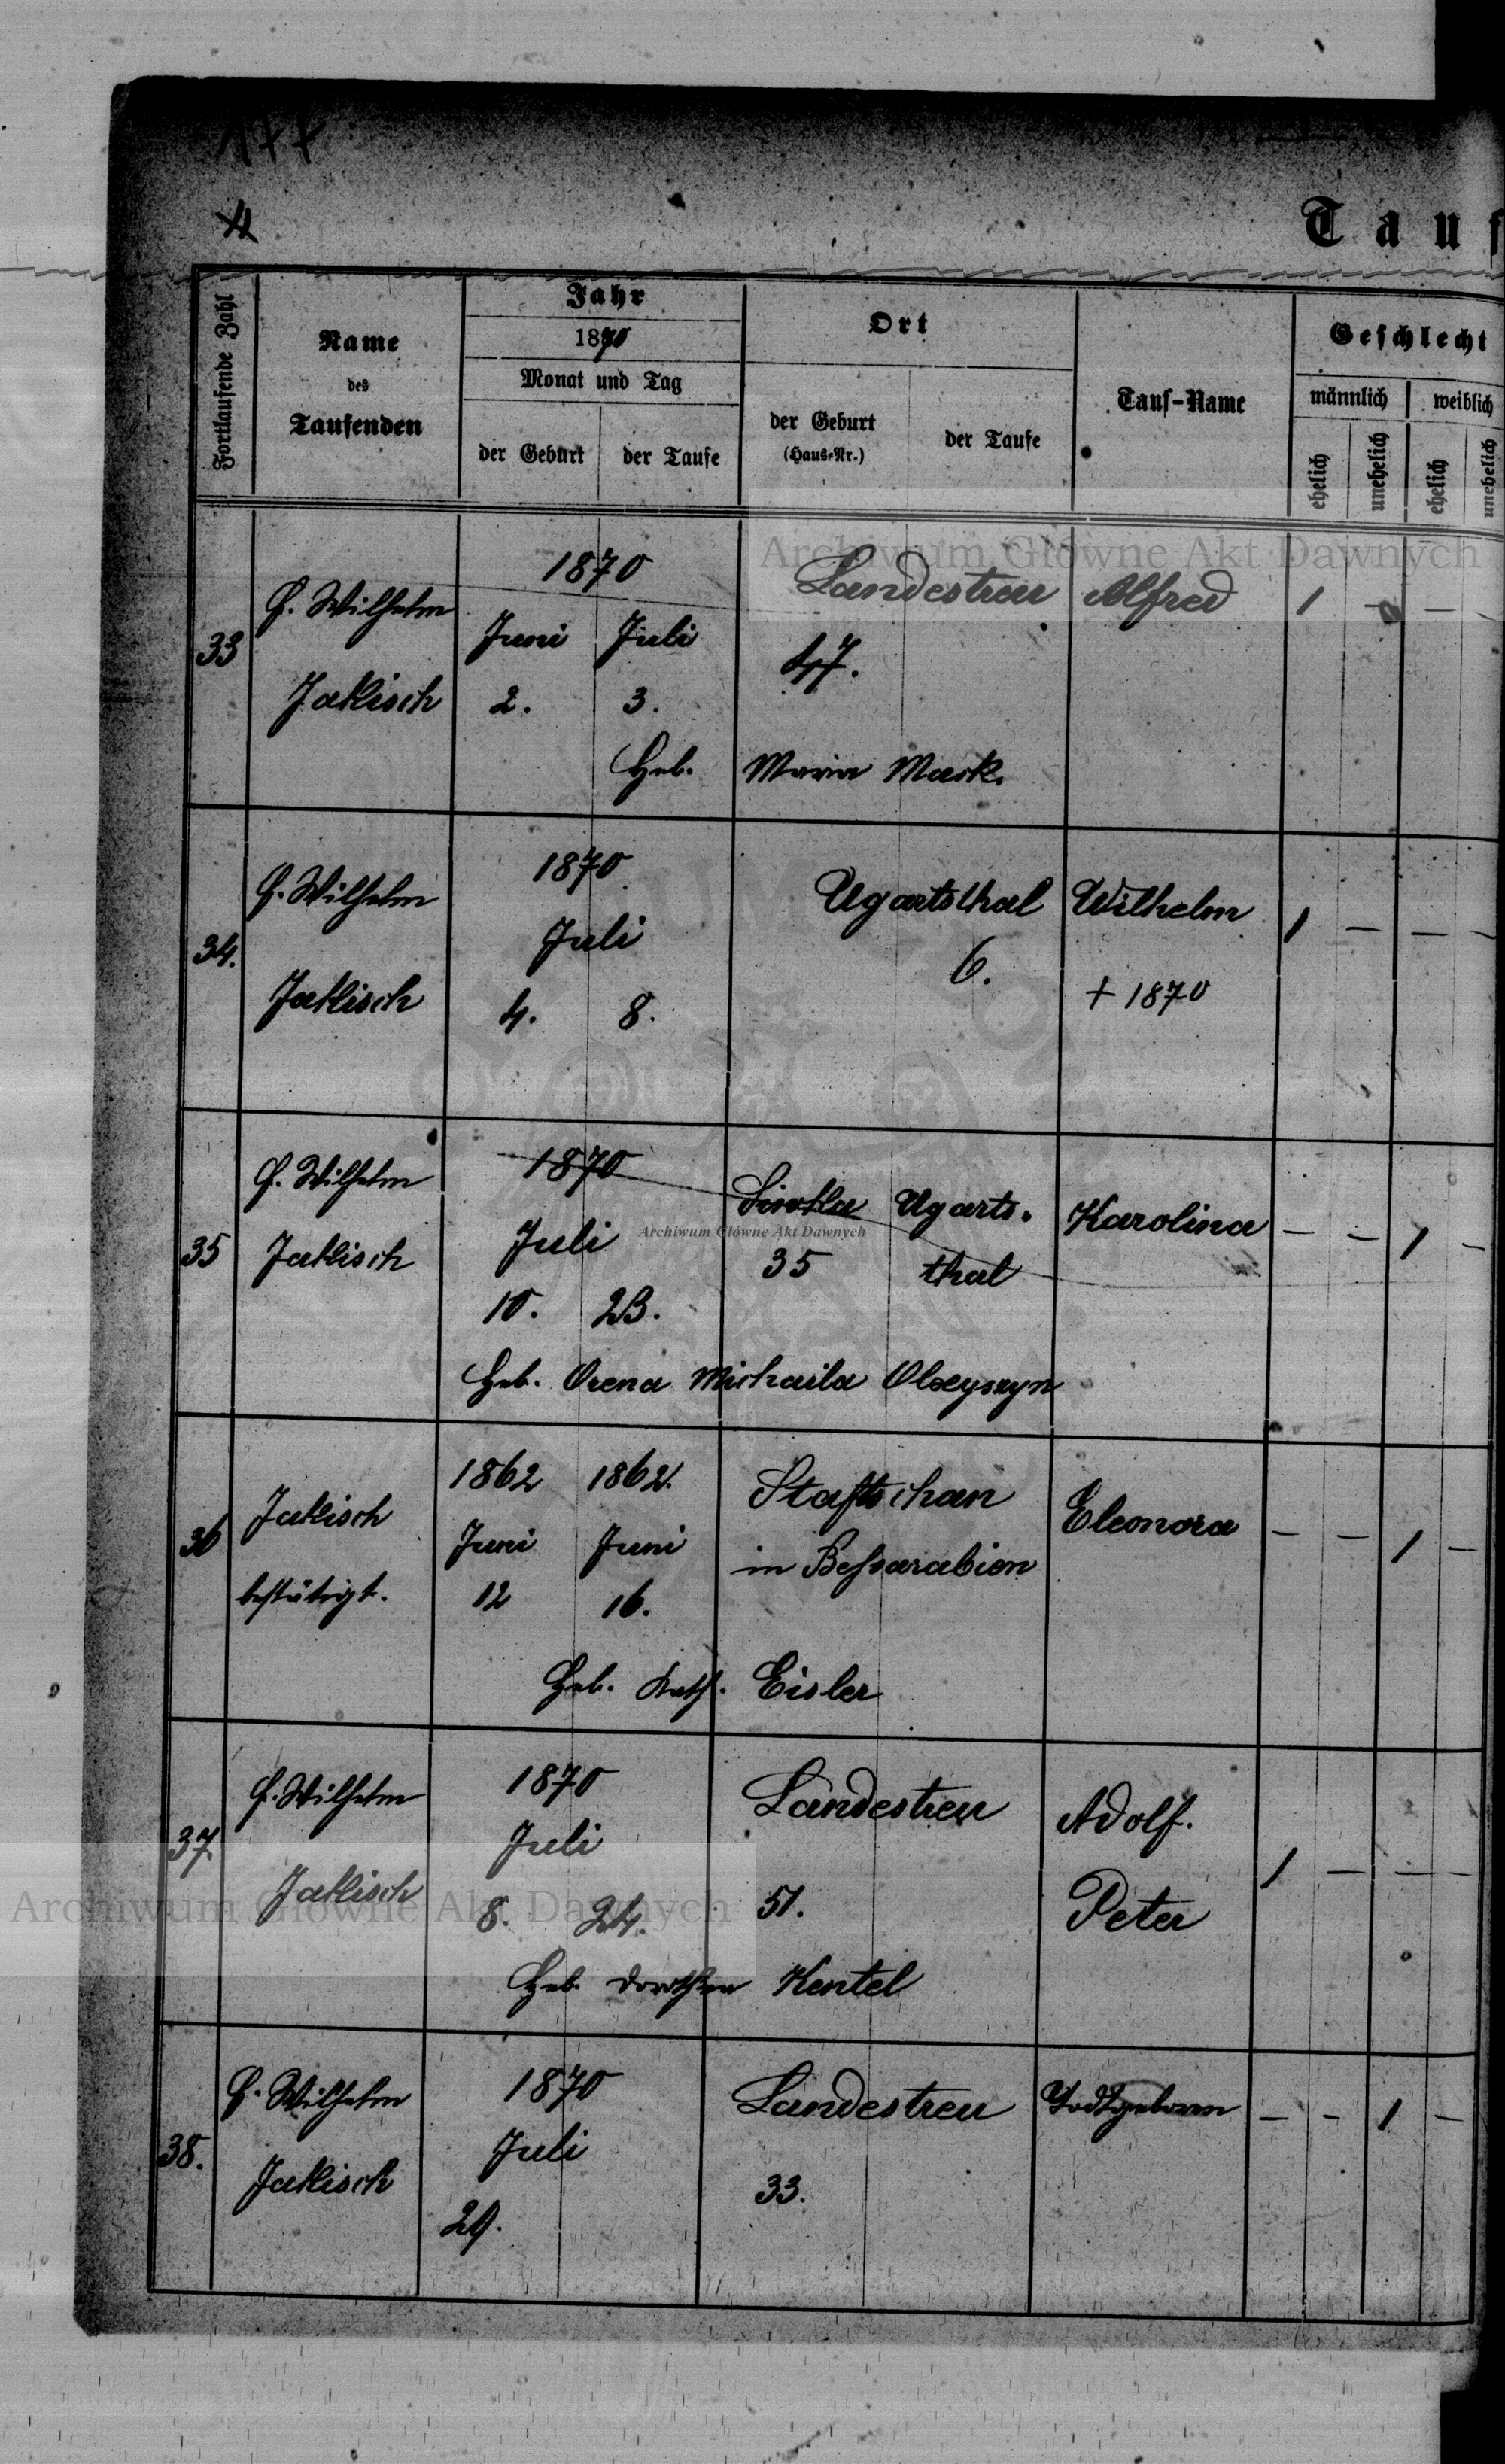 177
4
Tauf
Fortlaufende Zahl
Name
des
Taufenden
Jahr
1870
Monat und Tag
der Geburt
der Taufe
Ort
der Geburt
(Haus-Nr.)
der Taufe
Tauf-Name
Geschlecht
männlich
weiblich
ehelich
unehelich
ehelich
unehelich
Archiwum Główne Akt Dawnych
33
Wilhelm
Jakisch
1870
Juni Juli
2. 3.
Landestreu
47.
Alfred
1 — — —
Heb. Maria Mark.
34.
Wilhelm
Jakisch
1870
Juli
4. 8.
Ugartsthal
6.
Wilhelm
+ 1870
1 — — —
35
Wilhelm
Jakisch
1870
Juli
10. 23.
35
Ugarts-
thal
Karolina
— — 1 —
Archiwum Główne Akt Dawnych
Heb. Orena Michaila
36
Jakisch
bestätigt.
1862 1862.
Juni Juni
12 16.
in Beßarabien
Eleonora
— — 1 —
Heb. Kath. Eisler
37.
Wilhelm
Jakisch
1870
Juli
8. 24.
Landestreu
51.
Adolf.
Peter
1 — — —
Archiwum Główne Akt Dawnych
Heb. Dorothea Kentel
38.
Wilhelm
Jakisch
1870
Juli
29.
Landestreu
33.
Todtgeboren
— — 1 —